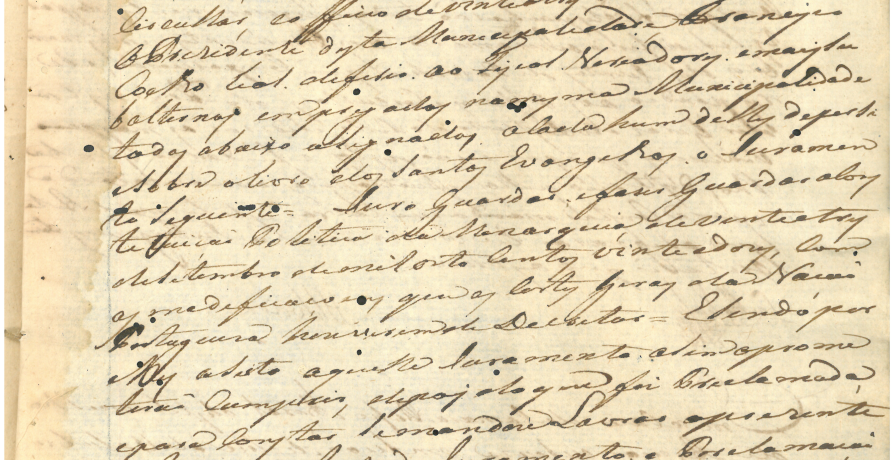 Circular, e officio de vinte e trez
O Prezidente desta Municipalidade Concejo
deferio ao Fiscal Veriadorez emais su
balternos empregados namesma Municipalidade
todos abaixo asignados acada hum delles deperssi
esobre olivro dos Santos Evangelhos o Juramen
to Seguinte = Juro Guardar, efazer Guardar a Cons
tetuicaõ Politica da Monarquia de vinte etrez
deSetembro de mil oito Centos vintedois, Com
as modeficacoens que as Cortes Geraes da Nacaõ
Portugueza houverem de Decretar = Elendo por
elles aseito aquelle Juramento asim oprome
teraõ Cumprir, depois do que foi Proclamada
epara Constar Semandou Lavrar oprezente
Juramento e Proclamacaõ